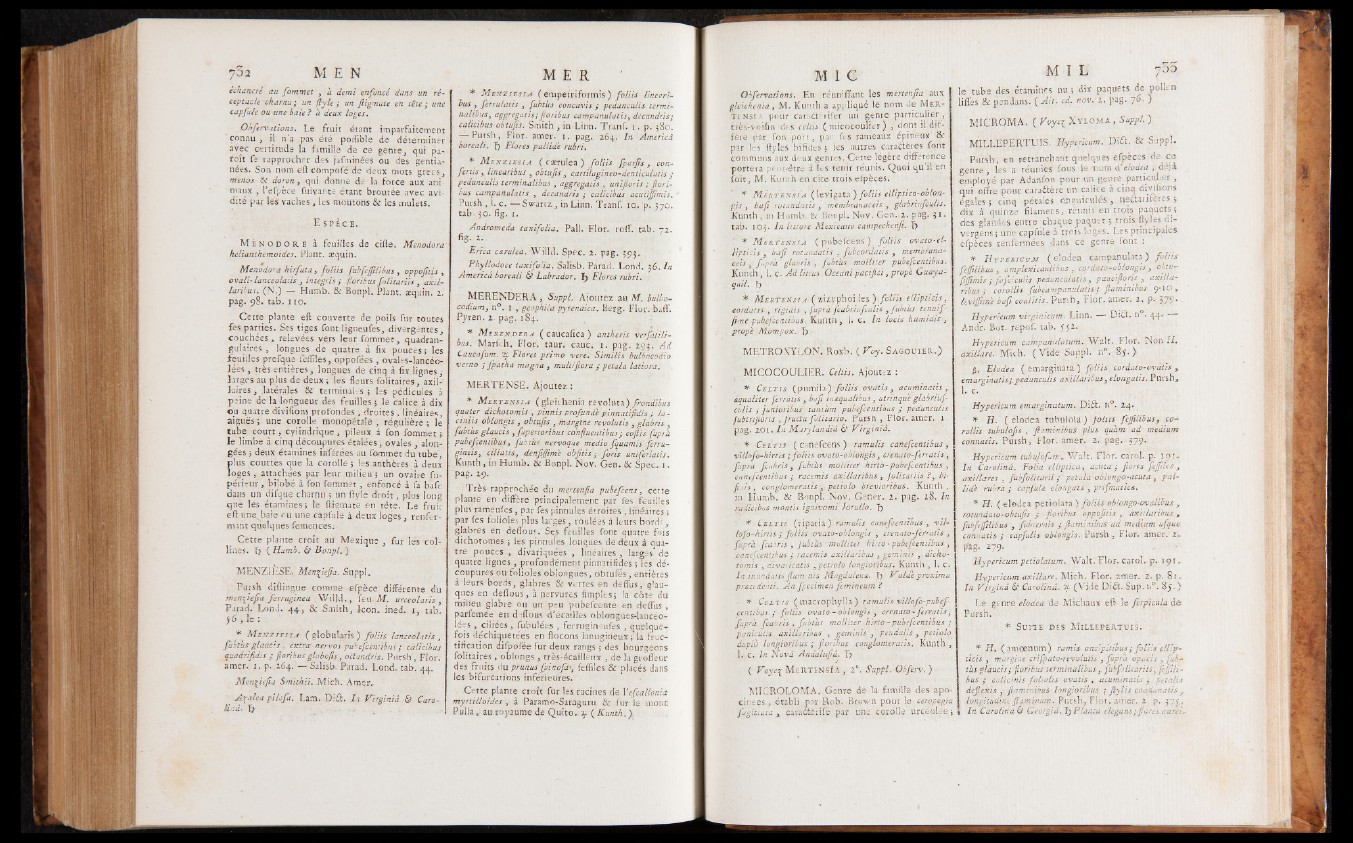 732 M E N
échancré au sommet, à demi enfoncé dans un ré-
ceptacle charnu; un style; un stigmate en tête; une
capsule ou une baie? à deux loges.
Observations. Le fruit étant imparfaitement
connu, il n'a pas été possible de déterminer
avec certitude la famille de ce genre, qui pa-
roît se rapprocher des jasminées ou des gentia-
nées. Son nom est composé de deux mots grecs,
menos & doron, qui donne de la force aux ani-
maux, l'espèce suivante étant broutée avec avi-
dité par les vaches, les moutons & les mulets.
ESPÈCE.
MENODORE à feuilles de ciste. Menodora
helianthemoides. Plant. æquin.
Menodora hirsuta, foliis subsessilibus, oppositis,
ovali-lanceolatis, integris; floribus solitariis, axil-
laribus. (N.) — Humb. & Bonpl. Plant. æquin. 2.
pag. 98. tab. 110.
Cette plante est couverte de poils sur toutes
ses parties. Ses tiges sont ligneuses, divergentes,
couchées, relevées vers leur sommet, quadran-
gulaires, longues de quatre à six pouces; les
feuilles presque sessiles, opposées, ovales-lancéo-
lées, très entières, longues de cinq à six lignes,
larges au plus de deux; les fleurs solitaires, axil-
laires, latérales & terminales; les pédicules à
peine de la longueur des feuilles; le calice à dix
ou quatre divisions profondes, droites, linéaires,
aiguës; une corolle monopétale, régulière; le
tube court, cylindrique, pileux à son sommet;
le limbe à cinq découpures étalées, ovales, alon-
gées; deux étamines insérées au sommet du tube,
plus courtes que la corolle; les anthères à deux
loges, attachées par leur milieu; un ovaire su-
périeur, bilobé à son sommet, enfoncé à sa base
dans un disque charnu; un style droit, plus long
que les étamines; le stigmate en tête. Le fruit
est une baie ou une capsule à deux loges, renfer-
mant quelques semences.
Cette plante croît au Mexique, sur les col-
lines. ♄ (Humb. & Bonpl.)
MENZIÈSE. Menziesia. Suppl.
Pursh distingue comme espèce différente du
menziesia ferruginea Willd., seu M. urceolaris,
Parad. Lond. 44, & Smith, Icon. ined. 1, tab.
56, le:
* MENZIESIA (globularis) foliis lanceolatis,
subtus glaucis, extra nervos pubescentibus; calicibus
quadrifidis; floribus globosis, octandris. Pursh, Flor.
amer. 1. p. 264. — Salisb. Parad. Lond. tab. 44.
Menziesia Smithii. Mich. Amer.
Azalea pilosa. Lam. Dict. In Virginiâ & Caro-
linâ. ♄
M E R
* MENZIESIA (empetriformis) foliis lineari-
bus, serrulatis, subtùs concavis; pedunculis termi-
nalibus, aggregatis; floribus campanulatis, decandris;
calicibus obtusis. Smith, in Linn. Trans. 10. p. 380.
— Pursh, Flor. amer. 1. pag. 264. In Americâ
boreali. ♄ Flores pallidè rubri.
* MENZIESIA (cærulea) foliis sparsis, con-
fertis, linearibus, obtusis, cartilagineo-denticulatis;
pedunculis terminalibus, aggregatis, unifloris; flori-
bus campanulatis, decandris; calicibus acutissimis.
Pursh, l. c. — Swartz, in Linn. Trans. 10. p. 370.
tab. 30. fig. 1.
Andromeda taxifolia. Pall. Flor. ross. tab. 72.
fig. 2.
Erica cærulea. Willd. Spec. 2. pag. 393.
Phyllodoce taxifolia. Salisb. Parad. Lond. 36. In
Americâ boreali & Labrador. ♄ Flores rubri.
MERENDERA, Suppl. Ajoutez au M. bulbo-
codium, n°. 1, geophila pyrenaica. Berg. Flor. bass.
Pyren. 2. pag. 184.
* MERENDERA (caucasica) antheris versatili-
bus. Marsch. Flor. taur. cauc. 1. pag. 293. Ad
Caucasum. ♃ Flores primo vere. Similis bulbocodio
verno; spatha magna, multiflora; petala latiora.
MERTENSE. Ajoutez:
* MERTENSIA (gleichenia revoluta) frondibus
quater dichotomis, pinnis profundè pinnatifidis, la-
ciniis oblongis, obtusis, margine revolutis, glabris,
subtùs glaucis, superioribus confluentibus; costis suprà
pubescentibus, subtùs nervoque medio squamis ferru-
gineis, ciliatis, densissimè obsitis; soris uniserialibus.
Kunth, in Humb. & Bonpl. Nov. Gen. & Spec. 1.
pag. 29.
Très-rapprochée du mertensia pubescens, cette
plante en diffère principalement par ses feuilles
plus rameuses, par ses pinnules étroites, linéaires;
par ses folioles plus larges, roulées à leurs bords,
glabres en dessous. Ses feuilles sont quatre fois
dichotomes; les pinnules longues de deux à qua-
tre pouces, divariquées, linéaires, larges de
quatre lignes, profondément pinnatifides; les dé-
coupures ou folioles oblongues, obtuses, entières
à leurs bords, glabres & vertes en dessus, glau-
ques en dessous, à nervures simples; la côte du
milieu glabre ou un peu pubescente en dessus,
parsemée en dessous d'écailles oblongues-lancéo-
lées, ciliées, subulées, ferrugineuses, quelque-
fois déchiquetées en flocons lanugineux; la fruc-
tification disposée sur deux rangs; des bourgeons
solitaires, oblongs, très-écailleux, de la grosseur
des fruits du prunus spinosa, sessiles & placés dans
les bifurcations inférieures.
Cette plante croît sur les racines de l'escallonia
myrtilloides, à Paramo-Saraguru & sur le mont
Pulla, au royaume de Quito. ♃ (Kunth.)
M I C
Observations. En réunissant les mertensia aux
gleichenia, M. Kunth a appliqué le nom de MER-
TENSIA pour caractériser un genre particulier,
très-voisin des celtis (micocoulier), dont il dif-
fère par son port, par ses rameaux épineux &
par les styles bifides; les autres caractères sont
communs aux deux genres. Cette légère différence
portera peut-être à les tenir réunis. Quoi qu'il en
soit, M. Kunth en cite trois espèces.
* MERTENSIA (levigata) foliis elliptico-oblon-
gis, basi rotundatis, membranaceis, glabriusculis.
Kunth, in Humb. & Bonpl. Nov. Gen. 2. pag. 31.
tab. 103. In littore Mexicano campechensi. ♄
* MERTENSIA (pubescens) foliis ovato-el-
lipticis, basi rotundatis, subcordatis, membrana-
ceis, suprà glabris, subtùs molliter pubescentibus.
Kunth, l. c. Ad litus Oceani pacifici, propè Guaya-
quil. ♄
* MERTENSIA (zizyphoides) foliis ellipticis,
cordatis, rigidis, suprà scabriusculis, subtùs tenuis-
simè pubescentibus. Kunth, l. c. In locis humidis,
propè Mompox. ♄
METROXYLON. Roxb. (Voy. SAGOUIER.)
MICOCOULIER. Celtis. Ajoutez:
* CELTIS (pumila) foliis ovatis, acuminatis,
æqualiter serratis, basi inæqualibus, utrinquè glabrius-
culis; junioribus tantùm pubescentibus; pedunculis
subtrifloris, fructu solitario. Pursh, Flor. amer. 1
pag. 201. In Marylandiâ & Virginiâ.
* CELTIS (canescens) ramulis canescentibus,
villoso-hirtis; foliis ovato-oblongis, crenato-serratis,
suprà scabris, subtùs molliter hirto-pubescentibus,
canescentibus; racemis axillaribus, solitariis?, bi-
fidis, conglomeratis, petiolo brevioribus. Kunth,
in Humb. & Bonpl. Nov. Gener. 2. pag. 28. In
radicibus montis ignivomi Jorullo. ♄
* CELTIS (riparia) ramulis canescentibus, vil-
loso-hirtis; foliis ovato-oblongis, crenato-serratis,
suprà scabris, subtùs molliter hirto-pubescentibus,
canescentibus; racemis axillaribus, geminis, dicho-
tomis, divaricatis, petiolo longioribus. Kunth, l. c.
In inundatis fluminis Magdalenæ. ♄ Valdè proxima
præcedenti. An specimen femineum?
* CELTIS (macrophylla) ramulis villoso-pubes-
centibus; foliis ovato-oblongis, crenato-serratis,
suprà scabris, subtùs molliter hirto-pubescentibus;
paniculis axillaribus, geminis, pendulis, petiolo
duplò longioribus; floribus conglomeratis. Kunth,
l. c. In Novâ Andalusiâ. ♄
(Voyez MERTENSIA, 2°. Suppl. Observ.)
MICROLOMA. Genre de la famille des apo-
cinées, établi par Rob. Brown pour le ceropegia
sagittata, caractérisé par une corolle urcéolée;
M I L 733
le tube des étamines nu; dix paquets de pollen
lisses & pendans. (Ait. ed. nov. 2. pag. 76.)
MICROMA. (Voyez XYLOMA, Suppl.)
MILLEPERTUIS. Hypericum. Dict. & Suppl.
Pursh, en retranchant quelques espèces de ce
genre, les a réunies sous le nom d'elodea, déjà
employé par Adanson pour un genre particulier,
qui offre pour caractère un calice à cinq divisions
égales; cinq pétales onguiculés, nectarifères;
dix à quinze filamens, réunis en trois paquets;
des glandes entre chaque paquet; trois styles di-
vergens; une capsule à trois loges. Les principales
espèces renfermées dans ce genre sont:
* HYPERICUM (elodea campanulata) foliis
sessilibus, amplexicaulibus, cordato-oblongis, obtu-
sissimis; fasciculis pedunculatis, paucifloris, axilla-
ribus; corollis subcampanulatis; staminibus 9-10,
levissimè basi coalitis. Pursh, Flor. amer. 2. p. 379.
Hypericum virginicum. Linn. — Dict. n°. 44. —
Andr. Bot. repos. tab. 552.
Hypericum campanulatum. Walt. Flor. Non H.
axillare. Mich. (Vide Suppl. n°. 85.)
β. Elodea (emarginata) foliis cordato-ovatis,
emarginatis; pedunculis axillaribus, elongatis. Pursh,
l. c.
Hypericum emarginatum. Dict. n°. 24.
* H. (elodea tubulosa) foliis sessilibus, co-
rollis tubulosis, staminibus plus quàm ad medium
connatis. Pursh, Flor. amer. 2. pag. 379.
Hypericum tubulosum. Walt. Flor. carol. p. 191.
In Carolinâ. Folia elliptica, acuta; flores sessiles,
axillares, subsolitarii; petala oblongo-acuta, pal-
lidè rubra; capsula elongata, prismatica.
* H. (elodea petiolata) foliis oblongo-ovalibus,
rotundato-obtusis; floribus oppositis, axillaribus,
subsessilibus, subternis; staminibus ad medium usque
connatis; capsulis oblongis. Pursh, Flor. amer. 2.
pag. 279.
Hypericum petiolatum. Walt. Flor. carol. p. 191.
Hypericum axillare. Mich. Flor. amer. 2. p. 81.
In Virginiâ & Carolinâ. ♃ (Vide Dict. Sup. n°. 85.)
Le genre elodea de Michaux est le serpicula de
Pursh.
* SUITE DES MILLEPERTUIS.
* H. (amœnum) ramis ancipitibus; foliis ellip-
ticis, margine crispato-revolutis, suprà opacis, sub-
tùs glaucis; floribus terminalibus, subsolitariis, sessili-
bus; calicinis foliolis ovatis, acuminatis; petalis
deflexis, staminibus longioribus; stylis coadunatis,
longitudine staminum. Pursh, Flor. amer. 2. p. 375.
In Carolinâ & Georgiâ. ♄ Planta elegans; flores aurei.